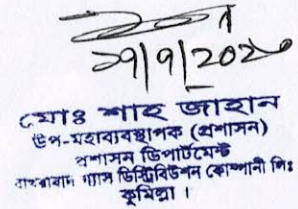 ২৭/৭/২০২০
মোঃ শাহ জাহান
উপ-মহাব্যবস্থাপক (প্রশাসন)
প্রশাসন ডিপার্টমেন্ট
বাখরাবাদ গ্যাস ডিস্ট্রিবিউশন কোম্পানী লিঃ
কুমিল্লা ।